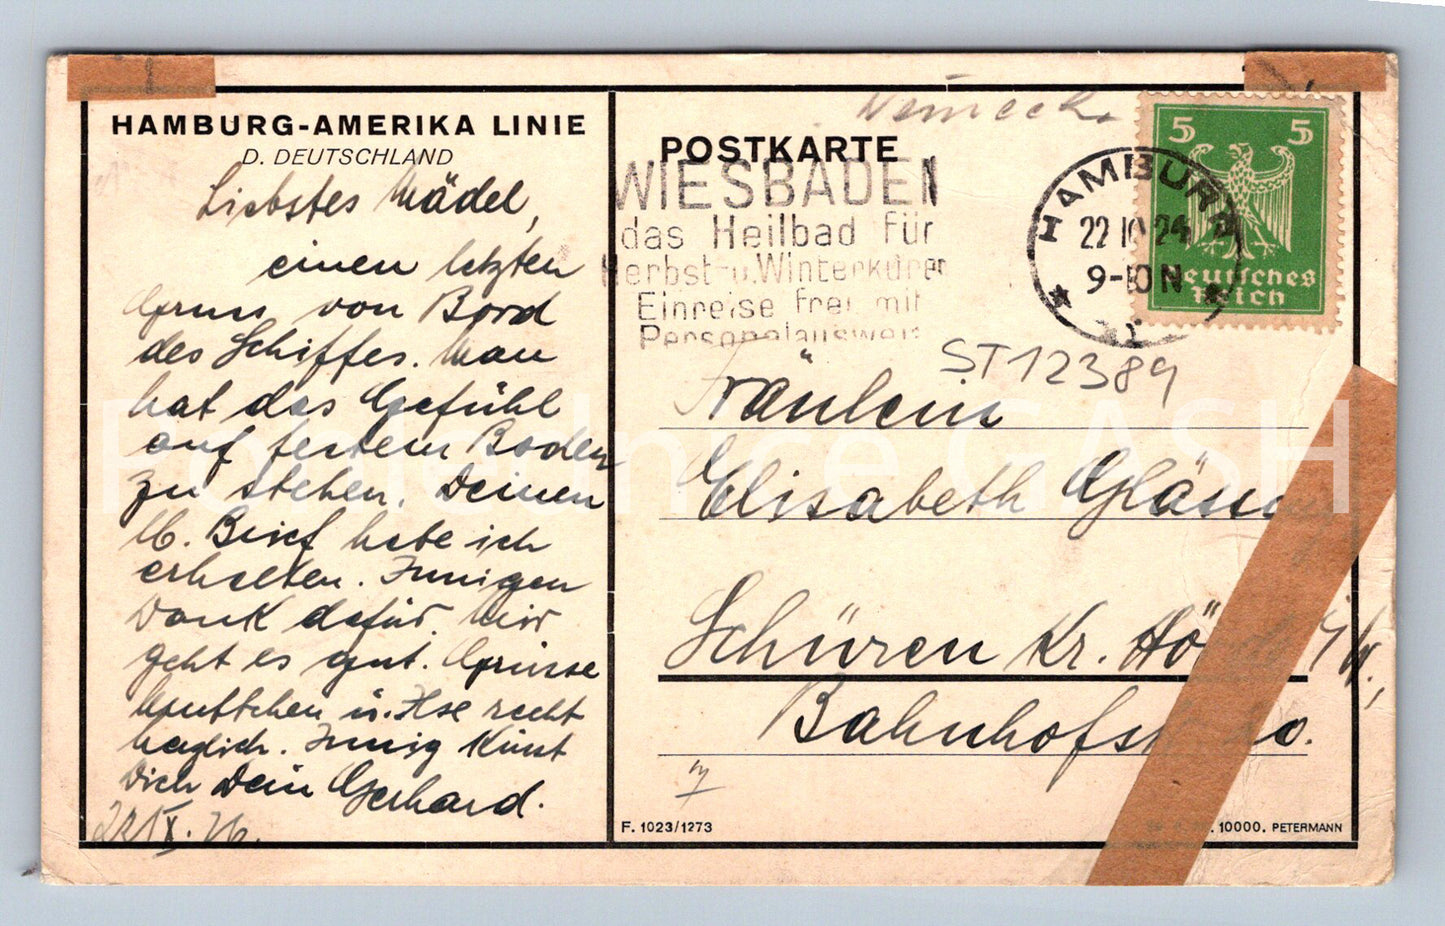 HAMBURG-AMERIKA LINIE
D. DEUTSCHLAND
Liebstes Mädel,
einen letzten
Gruss von Bord
des Schiffes. Man
hat das Gefühl
auf festem Boden
zu stehen. Deinen
lb. Brief habe ich
erhalten. Innigen
Dank dafür. Mir
geht es gut. Grüsse
Muttchen u. Ilse recht
herzlich. Innig küsst
Dich Dein Gerhard.
POSTKARTE
WIESBADEN
das Heilbad für
Herbst- u. Winterkuren
Einreise frei mit
Personalausweis
HAMBURG
22 10 24
9-10 N
1
5 5
Deutsches
Reich
ST12389
Fräulein
Elisabeth
Schüren Kr.
F. 1023/1273
10000. PETERMANN
Pohlednice GASH